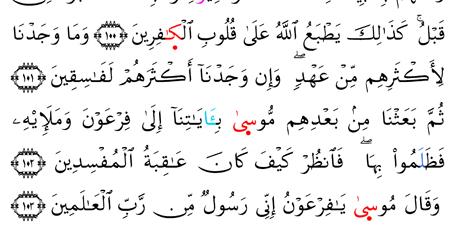 قَبۡلُۚ كَذَٰلِكَ يَطۡبَعُ ٱللَّهُ عَلَىٰ قُلُوبِ ٱلۡكَٰفِرِينَ ١٠٠ وَمَا وَجَدۡنَا
لِأَكۡثَرِهِم مِّنۡ عَهۡدٖۖ وَإِن وَجَدۡنَآ أَكۡثَرَهُمۡ لَفَٰسِقِينَ ١٠١
ثُمَّ بَعَثۡنَا مِنۢ بَعۡدِهِم مُّوسَىٰ بِـَٔايَٰتِنَآ إِلَىٰ فِرۡعَوۡنَ وَمَلَإِيْهِۦ
فَظَلَمُواْ بِهَاۖ فَٱنظُرۡ كَيۡفَ كَانَ عَٰقِبَةُ ٱلۡمُفۡسِدِينَ ١٠٢
وَقَالَ مُوسَىٰ يَٰفِرۡعَوۡنُ إِنِّي رَسُولٞ مِّن رَّبِّ ٱلۡعَٰلَمِينَ ١٠٣